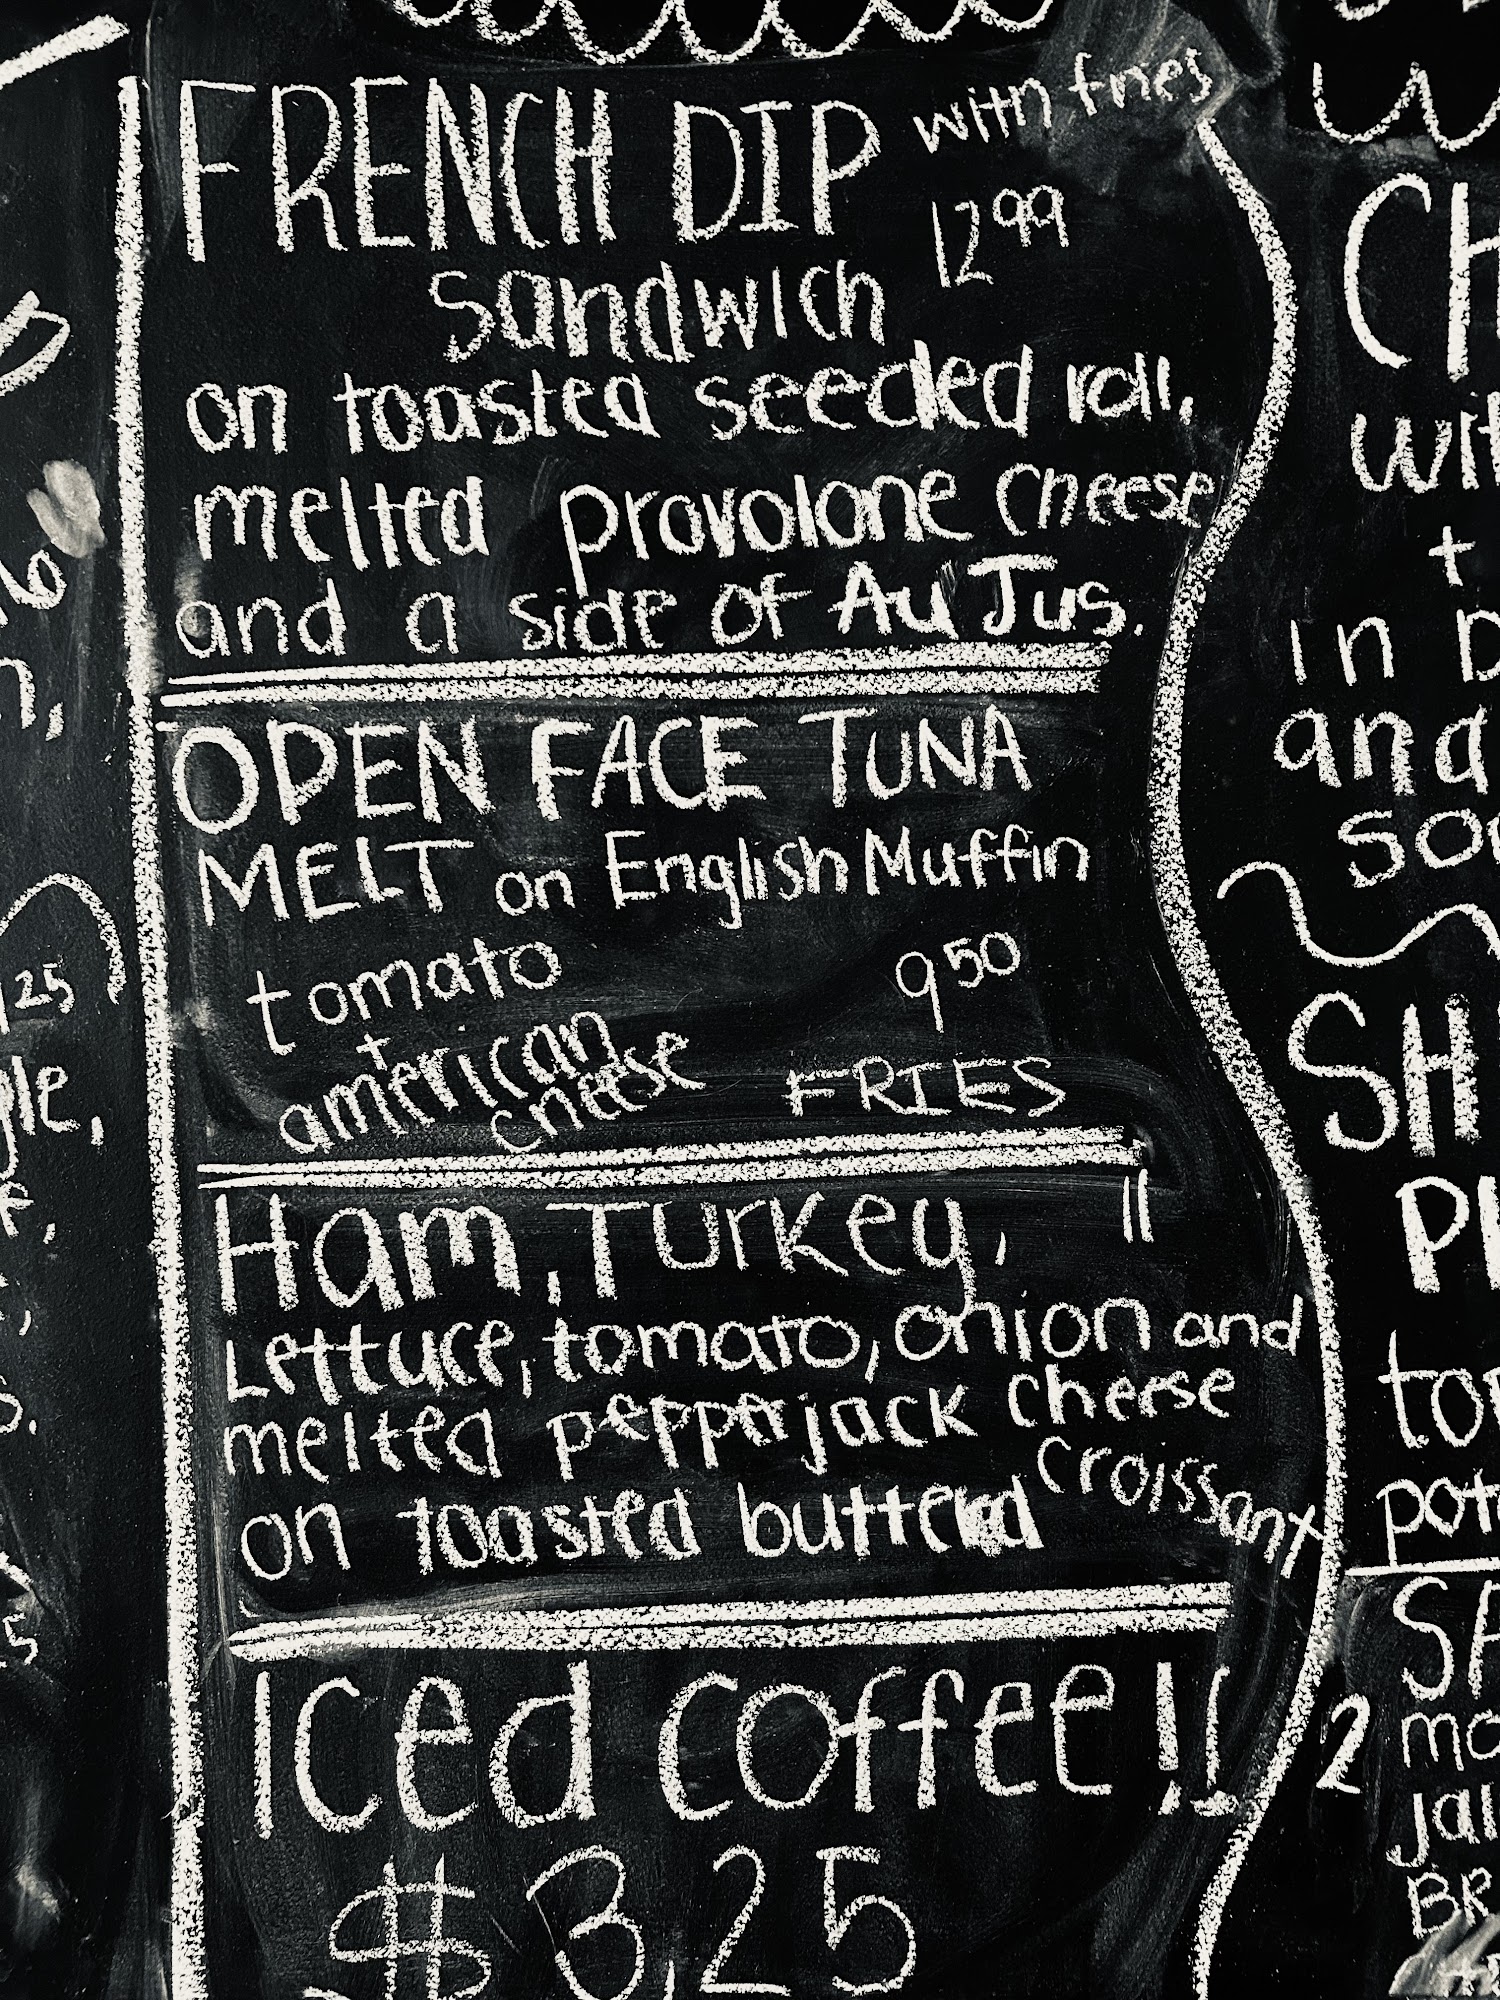 FRENCH DIP with fries
12 99
Sandwich
on toasted seeded roll,
melted provolone cheese
and a side of Au Jus.
OPEN FACE TUNA
MELT on English Muffin
tomato 9 50
+
american
cheese FRIES
Ham, Turkey, 11
Lettuce, tomato, onion and
melted pepperjack cheese
on toasted butterd croissant
Iced coffee!!
$3.25
25
5
CH
wit
+
in
and
SH
2